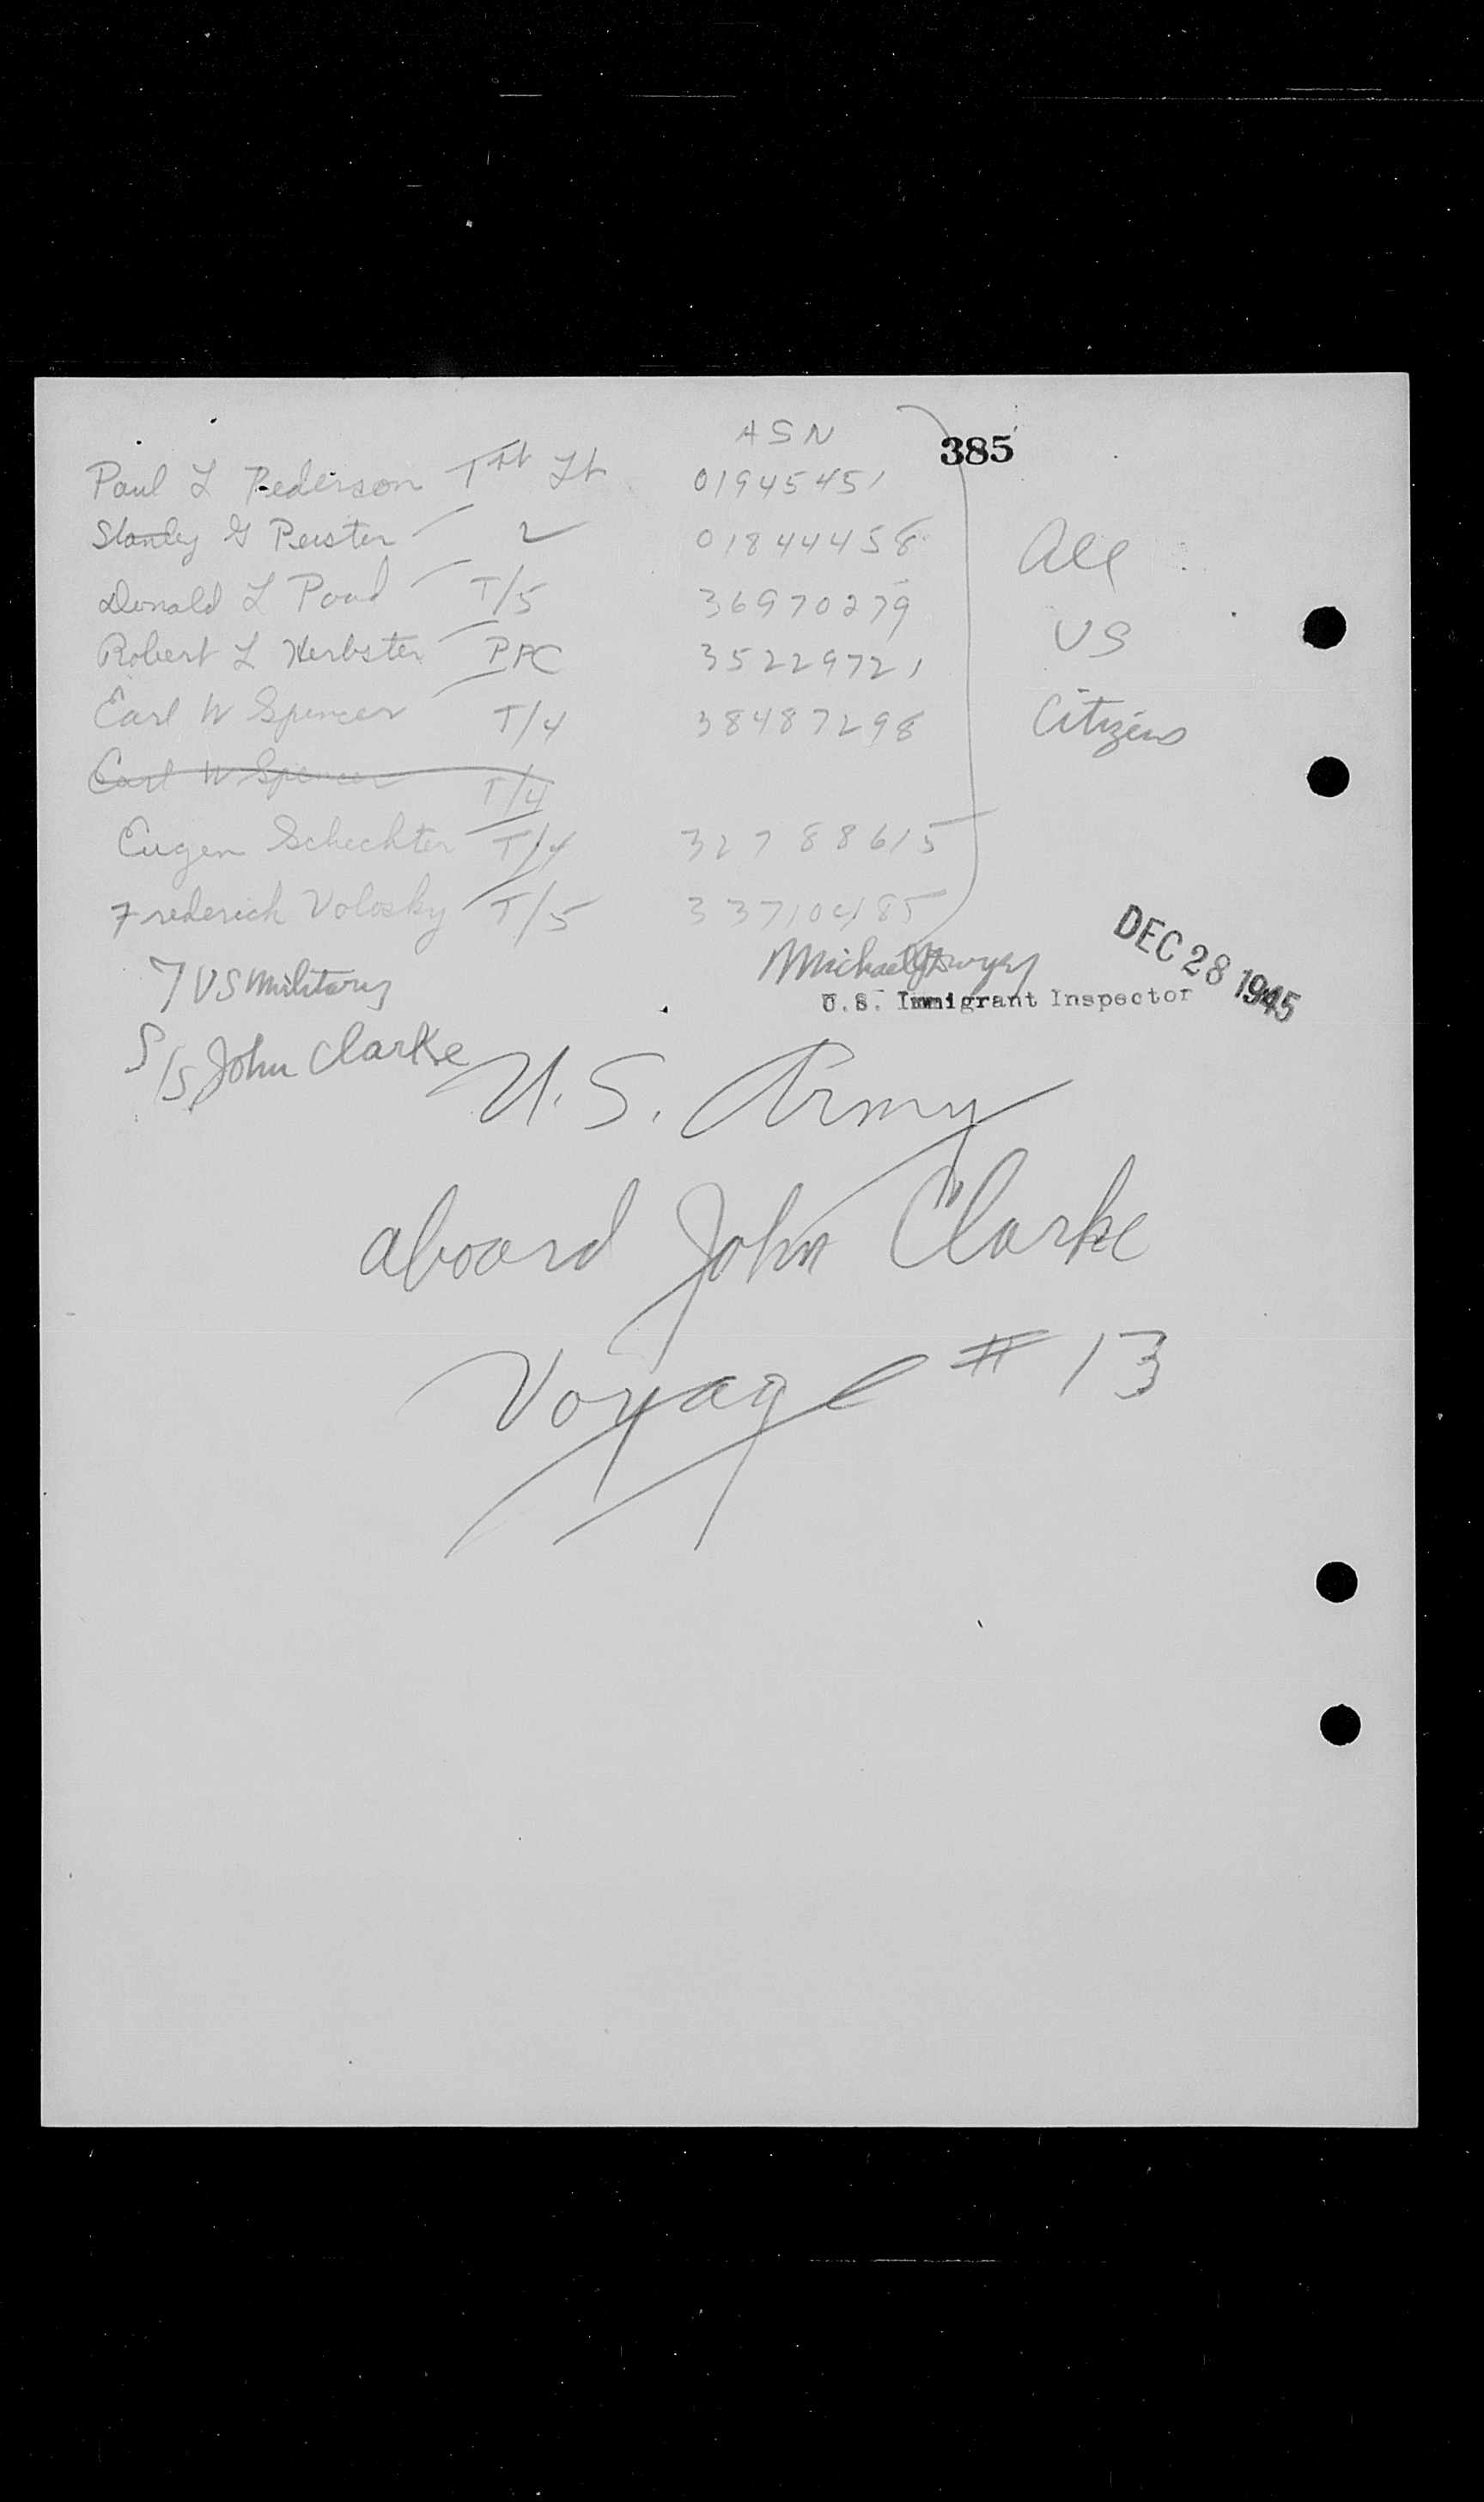 ASN
385
Paul L Pederson 1st Lt 01945451
Stanley G Peister 2 01844458
Donald L Pond T/5 36970279
Robert L Herbster PFC 35229721
Earl W Spencer T/4 38487298
Earl W Spencer T/4
Eugen Schechter T/4 32788615
Frederick Volosky T/5 33710485
All
US
Citizens
7 US Military
Michael
U.S. Immigrant Inspector
DEC 28 1945
S/S John Clarke
U.S. Army
aboard John Clarke
Voyage # 13